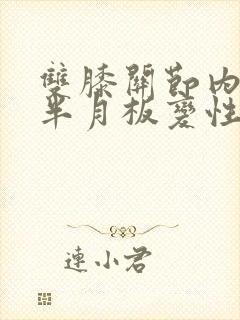 雙膝關節内
半月板變性
連小君